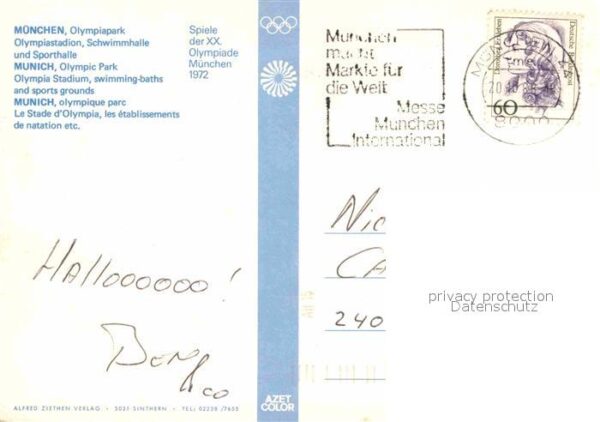 MÜNCHEN, Olympiapark
Olympiastadion, Schwimmhalle
und Sporthalle
MUNICH, Olympic Park
Olympia Stadium, swimming-baths
and sports grounds
MUNICH, olympique parc
Le Stade d'Olympia, les établissements
de natation etc.
Spiele
der XX.
Olympiade
München
1972
München
macht
Märkte für
die Welt
Messe
München
International
Deutsche Bundespost
60
8000
Hallooooooo!
Nic
CA
240
privacy protection
Datenschutz
AZET
COLOR
ALFRED ZIETHEN VERLAG • 5021 SINTHERN • TEL: 02238/7655